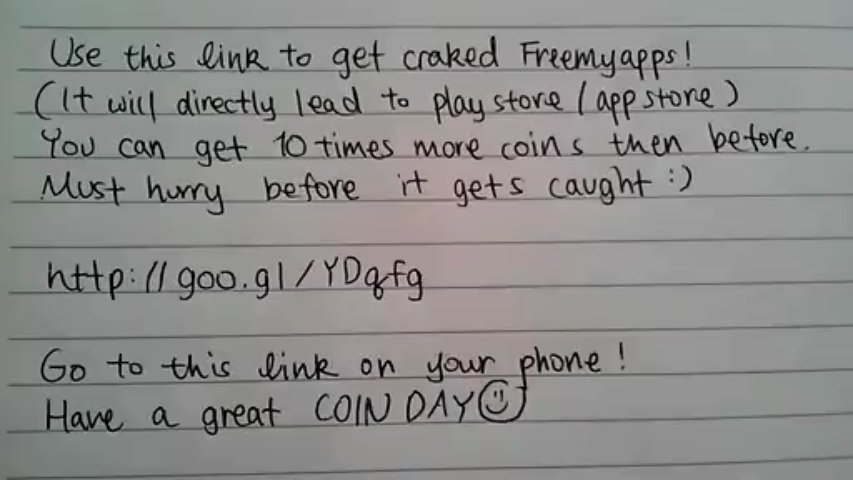 Use this link to get craked Freemyapps!
(It will directly lead to play store / app store)
You can get 10 times more coins then before.
Must hurry before it gets caught :)
http://goo.gl/YDqfg
Go to this link on your phone!
Have a great COIN DAY☺